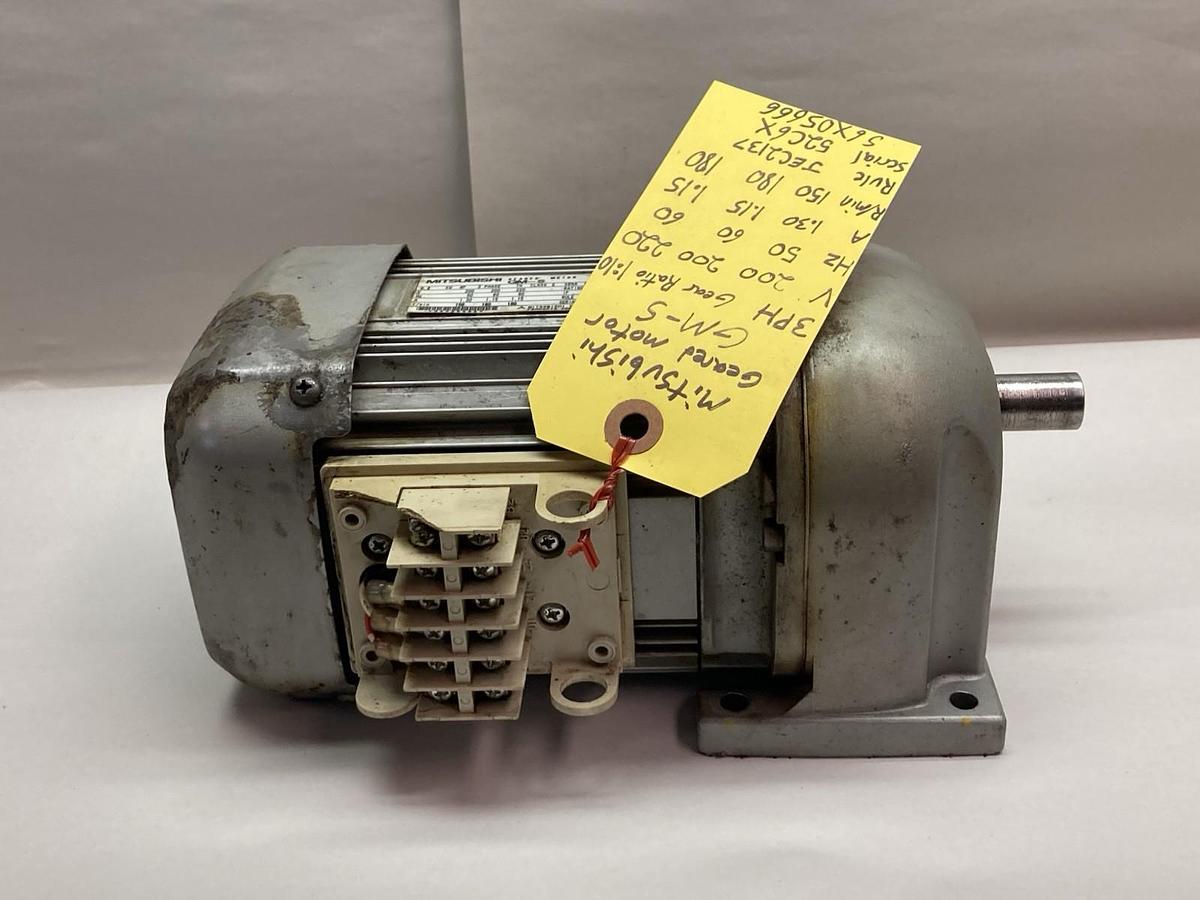 MITSUBISHI
Mitsubishi
Geared motor
GM-S
3PH Gear Ratio 1:10
V 200 200 220
HZ 50 60 60
A 1.30 1.15 1.15
R/min 150 180 180
Rule JEC2137
serial 52C6X
S6X05666